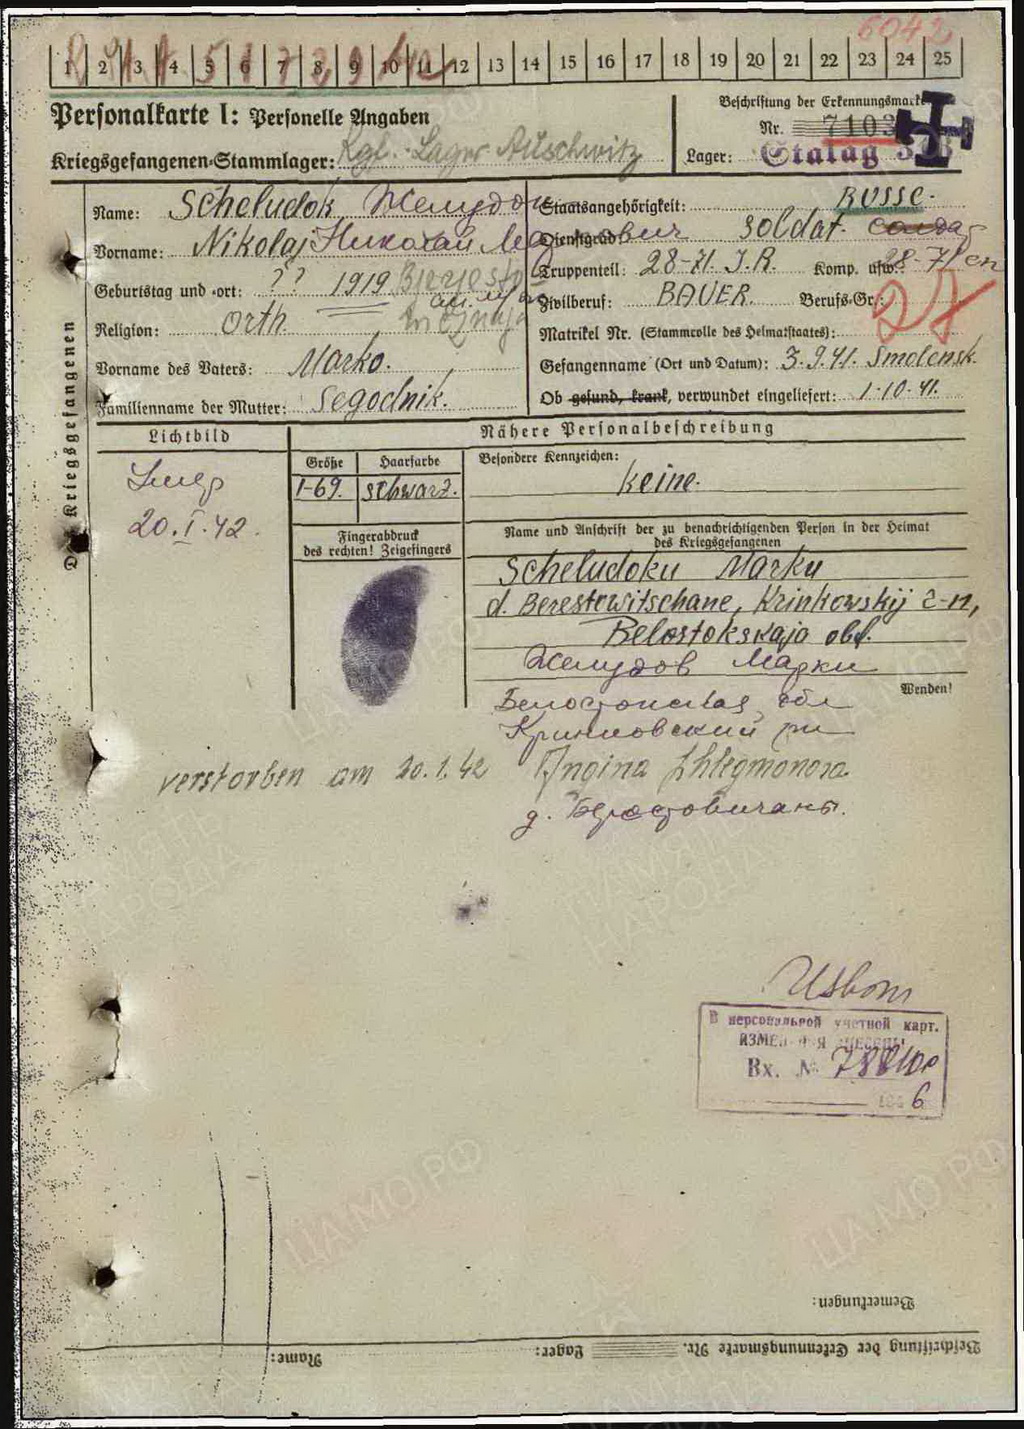 6042
1 2 3 4 5 6 7 8 9 10 11 12 13 14 15 16 17 18 19 20 21 22 23 24 25
Personalkarte I: Personelle Angaben
Kriegsgefangenen-Stammlager: Kgf.-Lager Auschwitz
Beschriftung der Erkennungsmarke
Nr. 7103
Lager: Stalag 308
Des Kriegsgefangenen
Name: Scheludok Желудок
Vorname: Nikolaj Николай
Geburtstag und -ort: ?? 1919
Religion: Orth.
Vorname des Vaters: Marko.
Familienname der Mutter: Segodnik.
Staatsangehörigkeit: RUSSE.
Dienstgrad: soldat.
Truppenteil: 28-71. J.R. Komp. usw.: 28-71
Zivilberuf: BAUER. Berufs-Gr.: 27
Matrikel Nr. (Stammrolle des Heimatstaates):
Gefangennahme (Ort und Datum): 3.9.41. Smolensk.
Ob gesund, krank, verwundet eingeliefert: 1-10-41.
Lichtbild
Умер
20.I.42.
Nähere Personalbeschreibung
Größe Haarfarbe
1-69. schwarz.
Besondere Kennzeichen:
keine.
Fingerabdruck
des rechten! Zeigefingers
Name und Anschrift der zu benachrichtigenden Person in der Heimat
des Kriegsgefangenen
Scheludoku Marku
d. Berestowitschane, Krinkowskij
Belostokskaja obl.
Марки
Wenden!
Белостокская обл
Кринковский
verstorben am 20.1.42 Angina Phlegmonosa
д. Берестовичаны.
В персональной учетной карт.
ИЗМЕНЕНИЯ ВНЕСЕНЫ
Вх. №
1946
Bemerkungen:
Beschriftung der Erkennungsmarke Nr. Lager: Name: